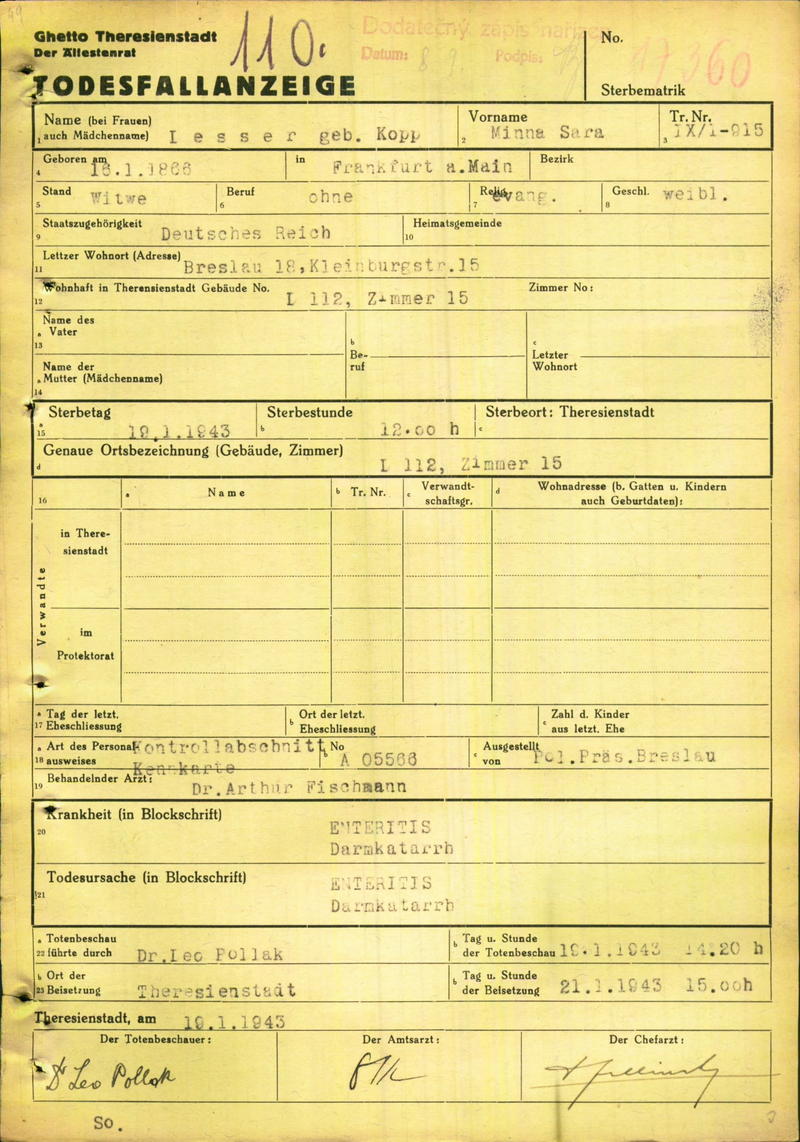 Ghetto Theresienstadt
Der Ältestenrat
110
Dodatečný zápis
Datum: 8 9 Podpis:
No.
17360
TODESFALLANZEIGE
Sterbematrik
Name (bei Frauen) auch Mädchenname) Lesser geb. Kopp
Vorname Minna Sara
Tr. Nr. IX/1-915
1 2 3
Geboren am 18.1.1866 in Frankfurt a.Main Bezirk
4
Stand Witwe Beruf ohne Relig. evang. Geschl. weibl.
5 6 7 8
Staatszugehörigkeit Deutsches Reich Heimatsgemeinde
9 10
Lettzer Wohnort (Adresse) Breslau 18,Kleinburgstr.15
11
Wohnhaft in Therensienstadt Gebäude No. L 112, Zimmer 15 Zimmer No:
12
Name des
a Vater
13
b Be-
ruf
c Letzter
Wohnort
Name der
a Mutter (Mädchenname)
14
Sterbetag 19.1.1943 Sterbestunde 12.00 h Sterbeort: Theresienstadt
a 15 b c
Genaue Ortsbezeichnung (Gebäude, Zimmer) L 112, Zimmer 15
d
16 a Name b Tr. Nr. c Verwandt-
schaftsgr. d Wohnadresse (b. Gatten u. Kindern
auch Geburtdaten):
Verwandte
in There-
sienstadt
im
Protektorat
a Tag der letzt.
17 Eheschliessung
b Ort der letzt.
Eheschliessung
c Zahl d. Kinder
aus letzt. Ehe
a Art des Personal-
18 ausweises Kontrollabschnitt
Kennkarte
b No A 05566
c Ausgestellt
von Pol.Präs.Breslau
Behandelnder Arzt: Dr.Arthur Fischmann
19
Krankheit (in Blockschrift) ENTERITIS
20 Darmkatarrh
Todesursache (in Blockschrift) ENTERITIS
21 Darmkatarrh
a Totenbeschau
22 führte durch Dr.Leo Pollak
b Tag u. Stunde
der Totenbeschau 19.1.1943 14.20 h
b Ort der
23 Beisetzung Theresienstadt
b Tag u. Stunde
der Beisetzung 21.1.1943 15.00h
Theresienstadt, am 19.1.1943
Der Totenbeschauer: Der Amtsarzt: Der Chefarzt:
Dr Leo Pollak
So.